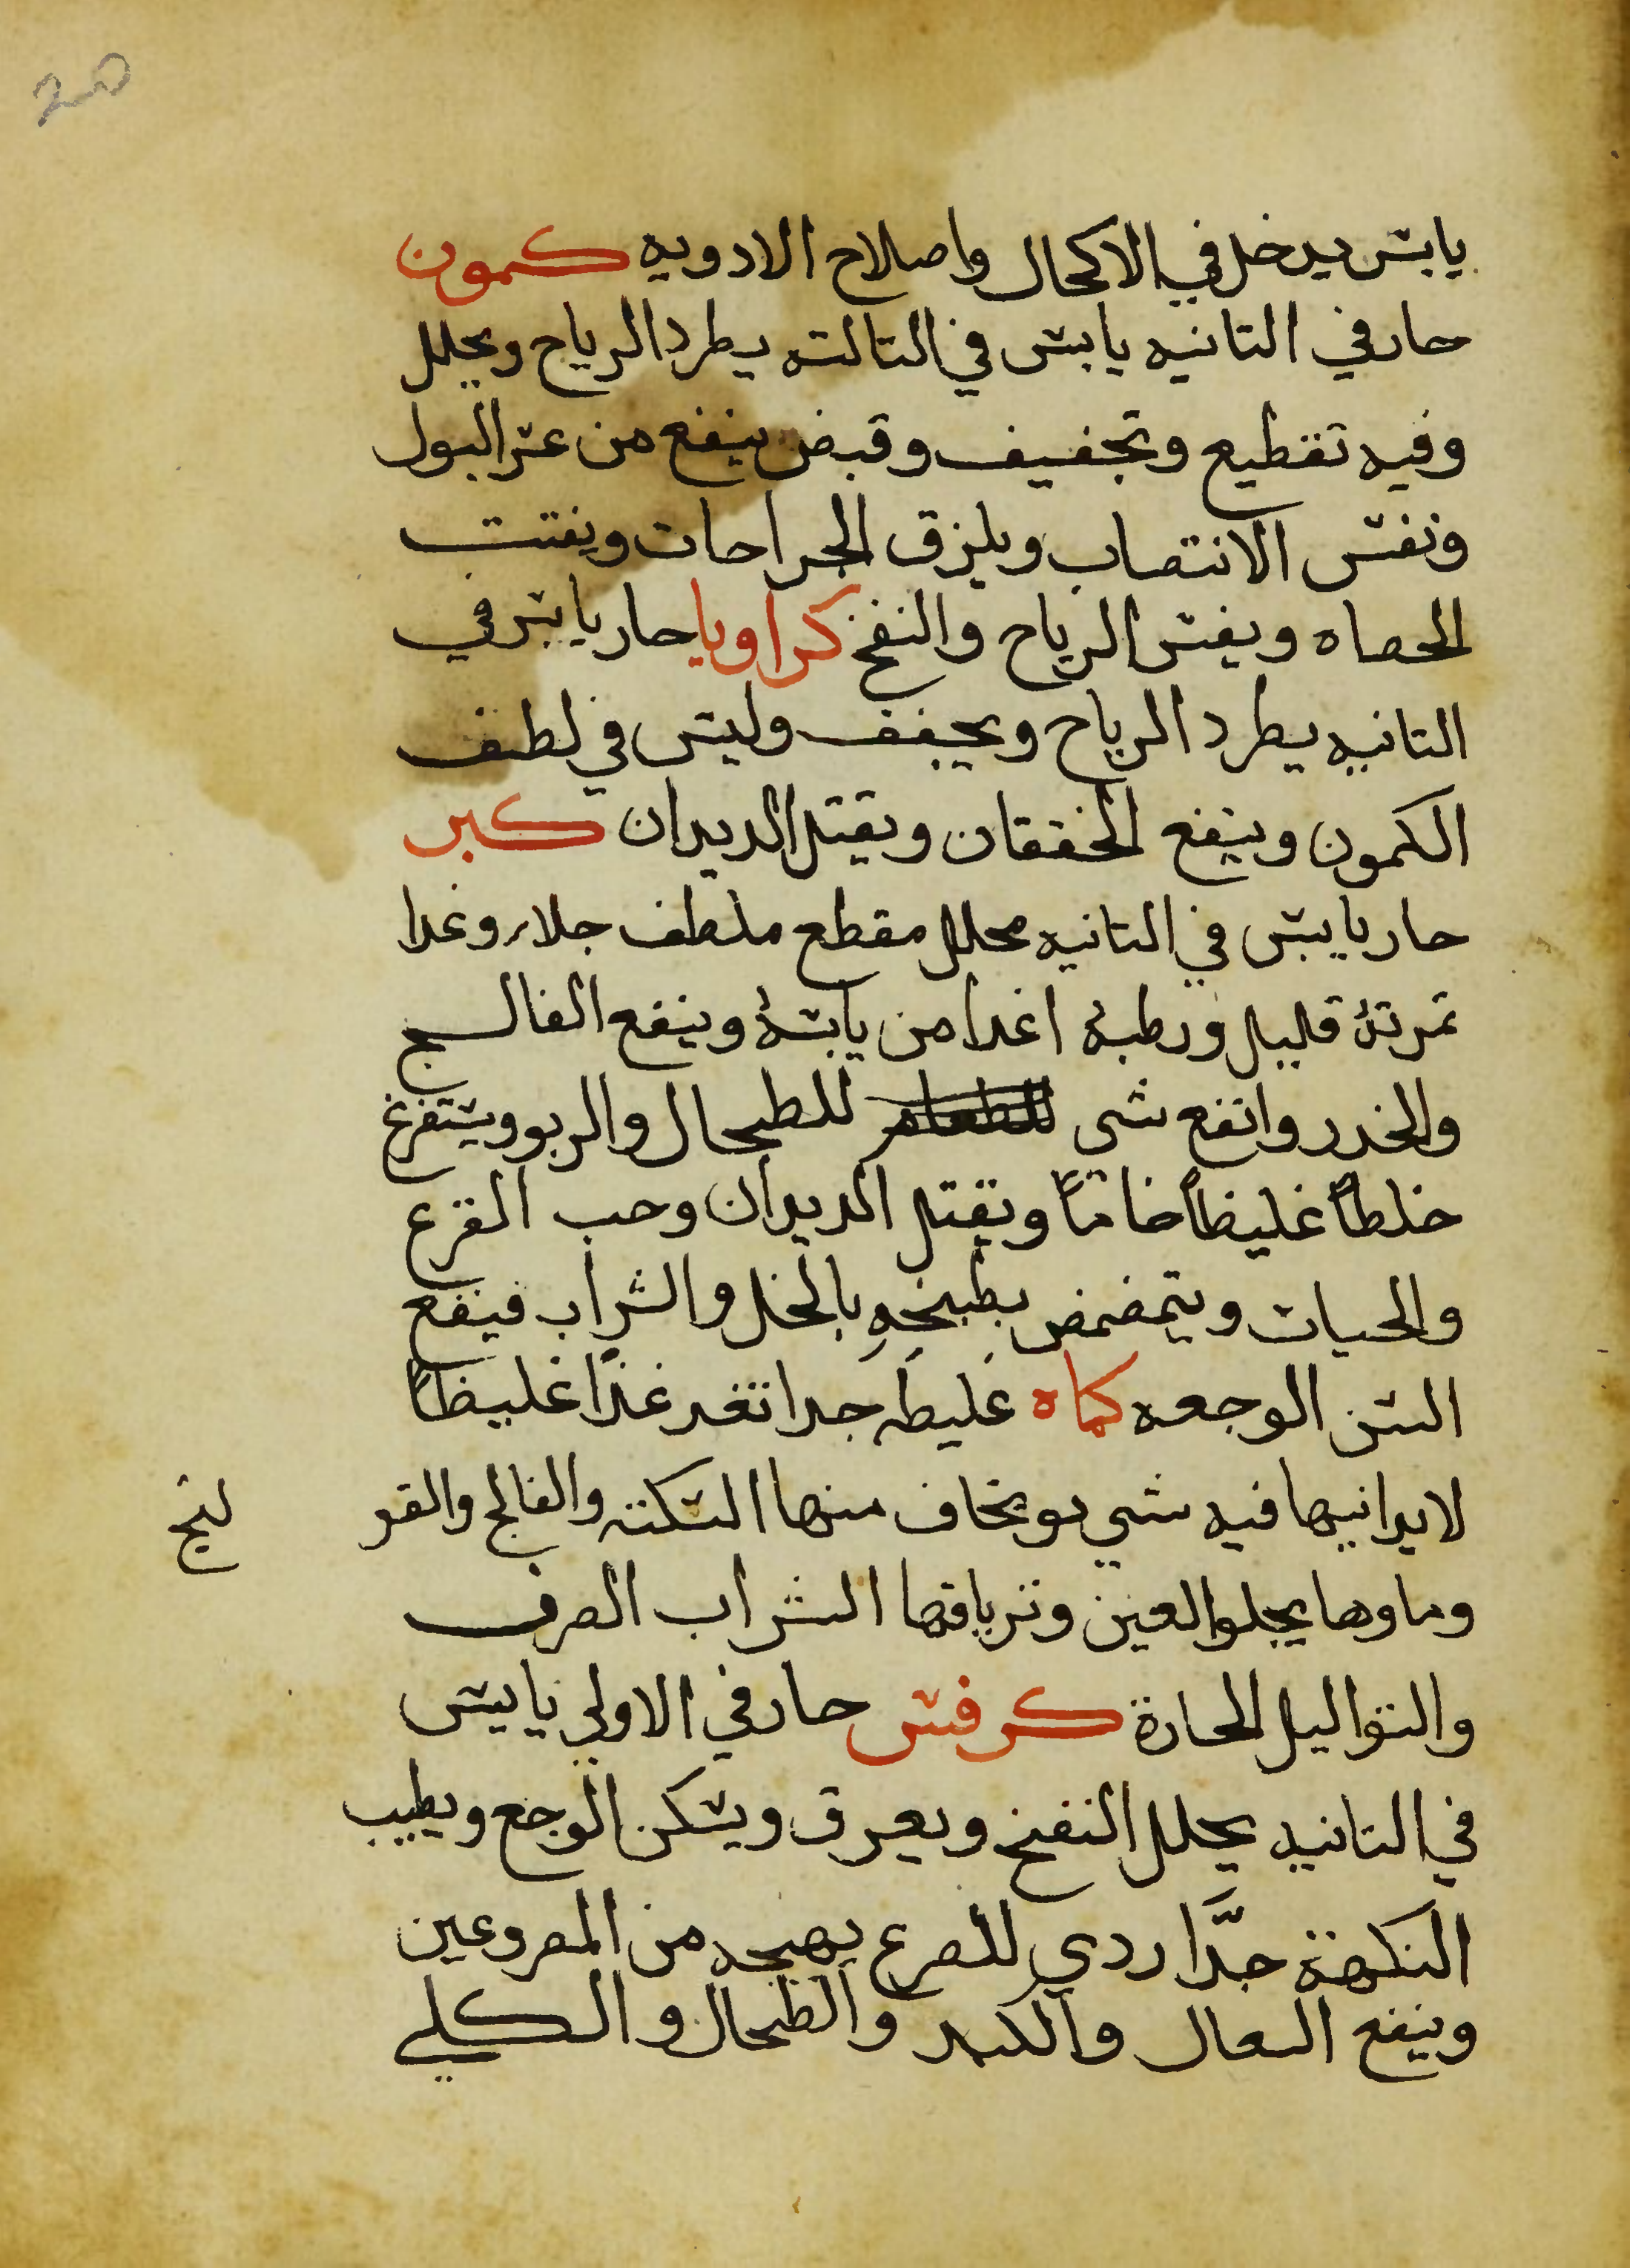 يابس يدخل في الاكحال واصلاح الادويه كمون
حار في التانيه يابس في التالته يطرد الرياح ويحلل
وفيه تقطيع وتجفيف وقبض ينفع من عسر البول
ونفس الانتصاب ويلزق الجراحات ويفتت
الحصاه ويفش الرياح والنفخ كراويا حار يابس في
التانيه يطرد الرياح ويجفف وليس في لطف
الكمون وينفع الخفقان ويقتل الديدان كبر
حار يابس في التانيه محلل مقطع ملطف جلاء وغدا
تمرته قليل ورطبه اغدا من يابسه وينفع الفالج
والخدر وانفع شى للطحال والربو ويستفرغ
خلطاً غليظاً خاماً ويقتل الديدان وحب القرع
والحيات ويتمضمض بطبيخه بالخل والشراب فينفع
السن الوجعه كماه غليظه جدا تغد غذا غليظاً
لا يدانيها فيه شي ويخاف منها السكته والفالج والقو
لنج
وماوها يجلو العين وترياقها الشراب الصرف
والتوابل الحارة كرفس حار في الاولي يابس
في التانيه يحلل النفخ ويعرق ويسكن الوجع ويطيب
النكهة جدَّا ردي للصرع يهيجه من المصروعين
وينفع السعال والكبد والطحال والكلي